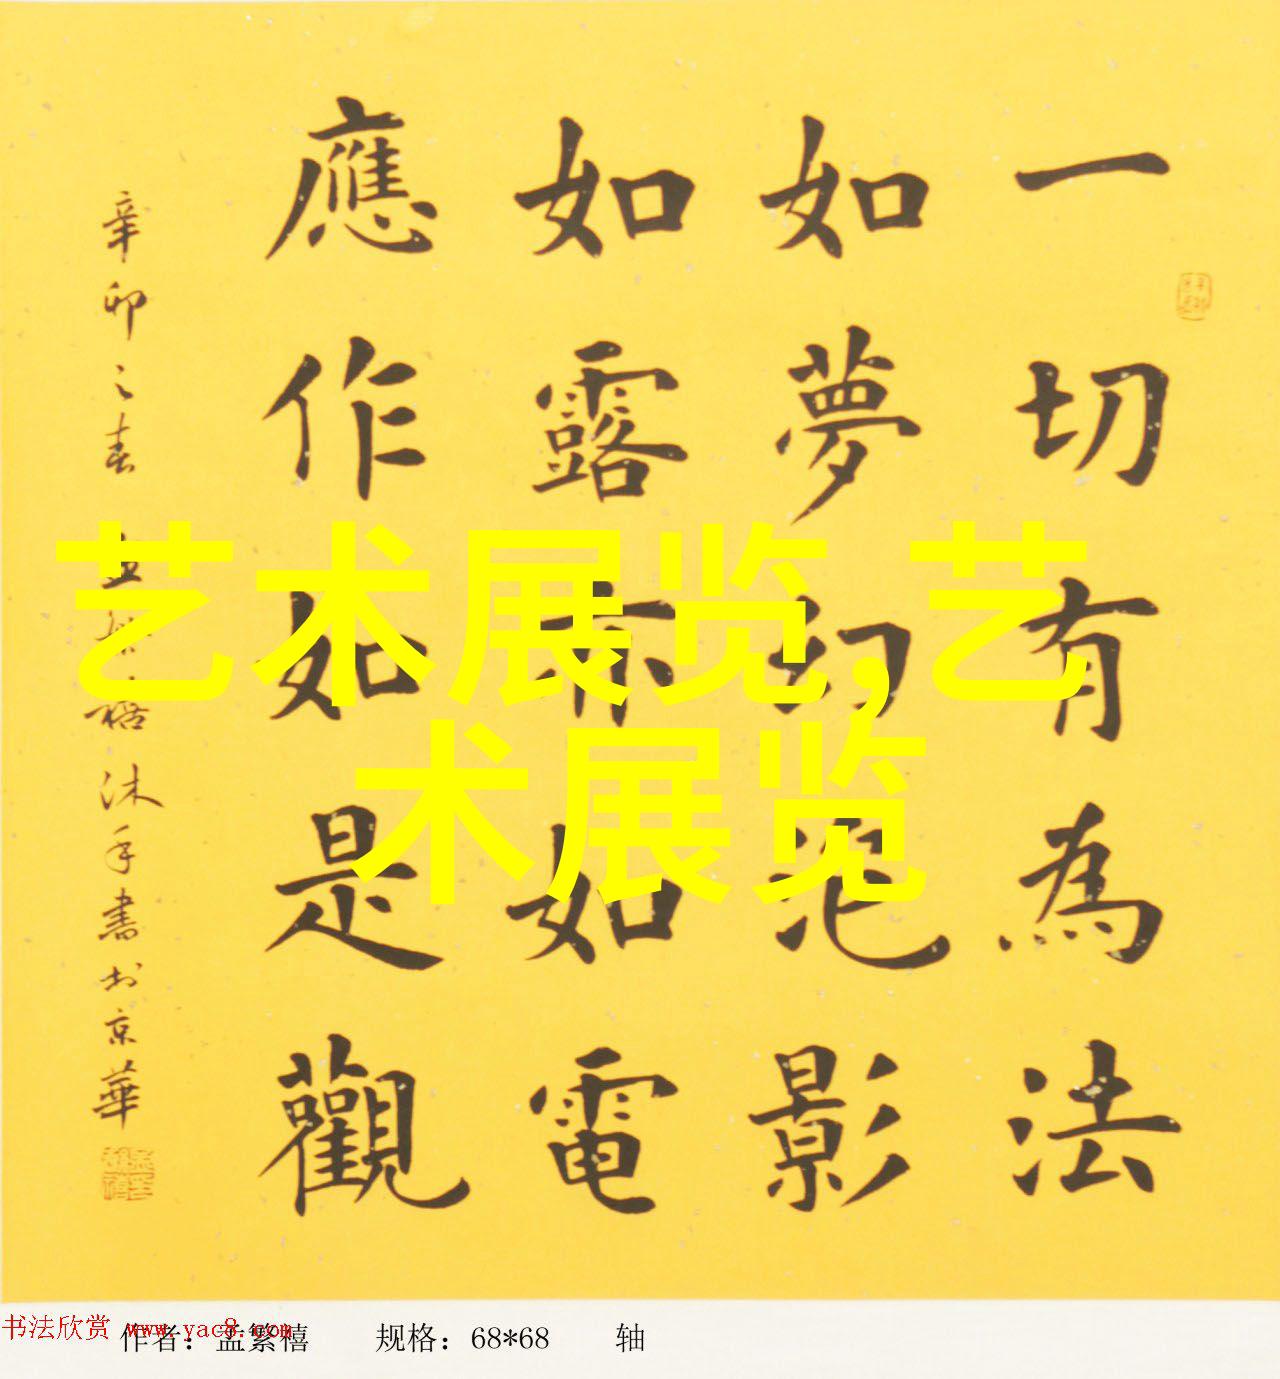 一切有為法
如夢幻泡影
如露亦如電
應作如是觀
辛卯之春孟繁禧沐手書於京華
艺术展览,艺
术展览
书法欣赏 www.yac8.com
作者：孟繁禧 规格：68*68 轴